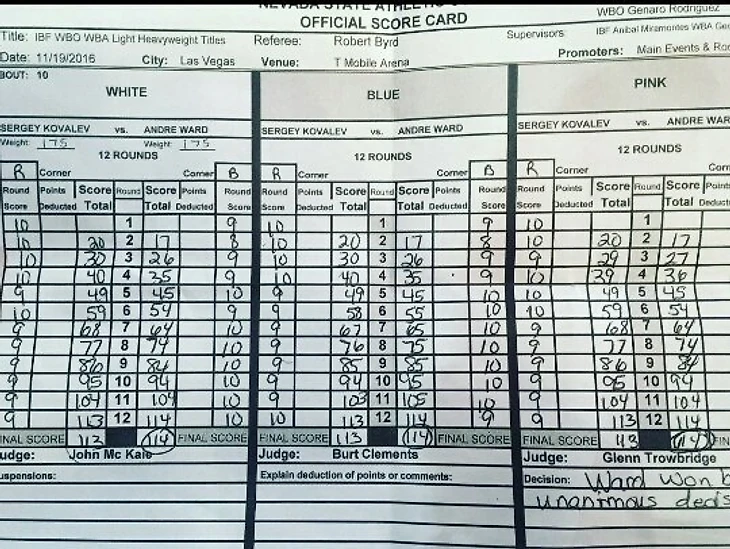 NEVADA STATE ATHLETIC
OFFICIAL SCORE CARD
WBO Genaro Rodriguez
Title: IBF WBO WBA Light Heavyweight Titles Referee: Robert Byrd Supervisors IBF Anibal Miramontes WBA
Date: 11/19/2016 City: Las Vegas Venue: T Mobile Arena Promoters: Main Events &
BOUT: 10
WHITE BLUE PINK
SERGEY KOVALEV vs. ANDRE WARD SERGEY KOVALEV vs. ANDRE WARD SERGEY KOVALEV vs. ANDRE WARD
Weight: 175 Weight: 175
12 ROUNDS 12 ROUNDS 12 ROUNDS
R Corner Corner B R Corner Corner B R Corner
Round Points Score Round Score Points Round Round Points Score Round Score Points Round Round Points Score Round Score Points
Score Deducted Total Total Deducted Score Score Deducted Total Total Deducted Score Score Deducted Total Total
10 1 9 10 1 9 10 1
10 20 2 17 8 10 20 2 17 8 10 20 2 17
10 30 3 26 9 10 30 3 26 9 9 29 3 27
10 40 4 35 9 10 40 4 35 9 10 39 4 36
9 49 5 45 10 9 49 5 45 10 10 49 5 45
10 59 6 54 9 9 58 6 55 10 10 59 6 54
9 68 7 64 10 9 67 7 65 10 9 68 7 64
9 77 8 74 10 9 76 8 75 10 9 77 8 74
9 86 9 84 10 9 85 9 85 10 9 86 9 84
9 95 10 94 10 9 94 10 95 10 9 95 10 94
9 104 11 104 10 9 103 11 105 10 9 104 11 104
9 113 12 114 10 10 113 12 114 9 9 113 12 114
FINAL SCORE 113 114 FINAL SCORE FINAL SCORE 113 114 FINAL SCORE FINAL SCORE 113 114
Judge: John Mc Kaie Judge: Burt Clements Judge: Glenn Trowbridge
Suspensions: Explain deduction of points or comments: Decision: Ward won
unanimous